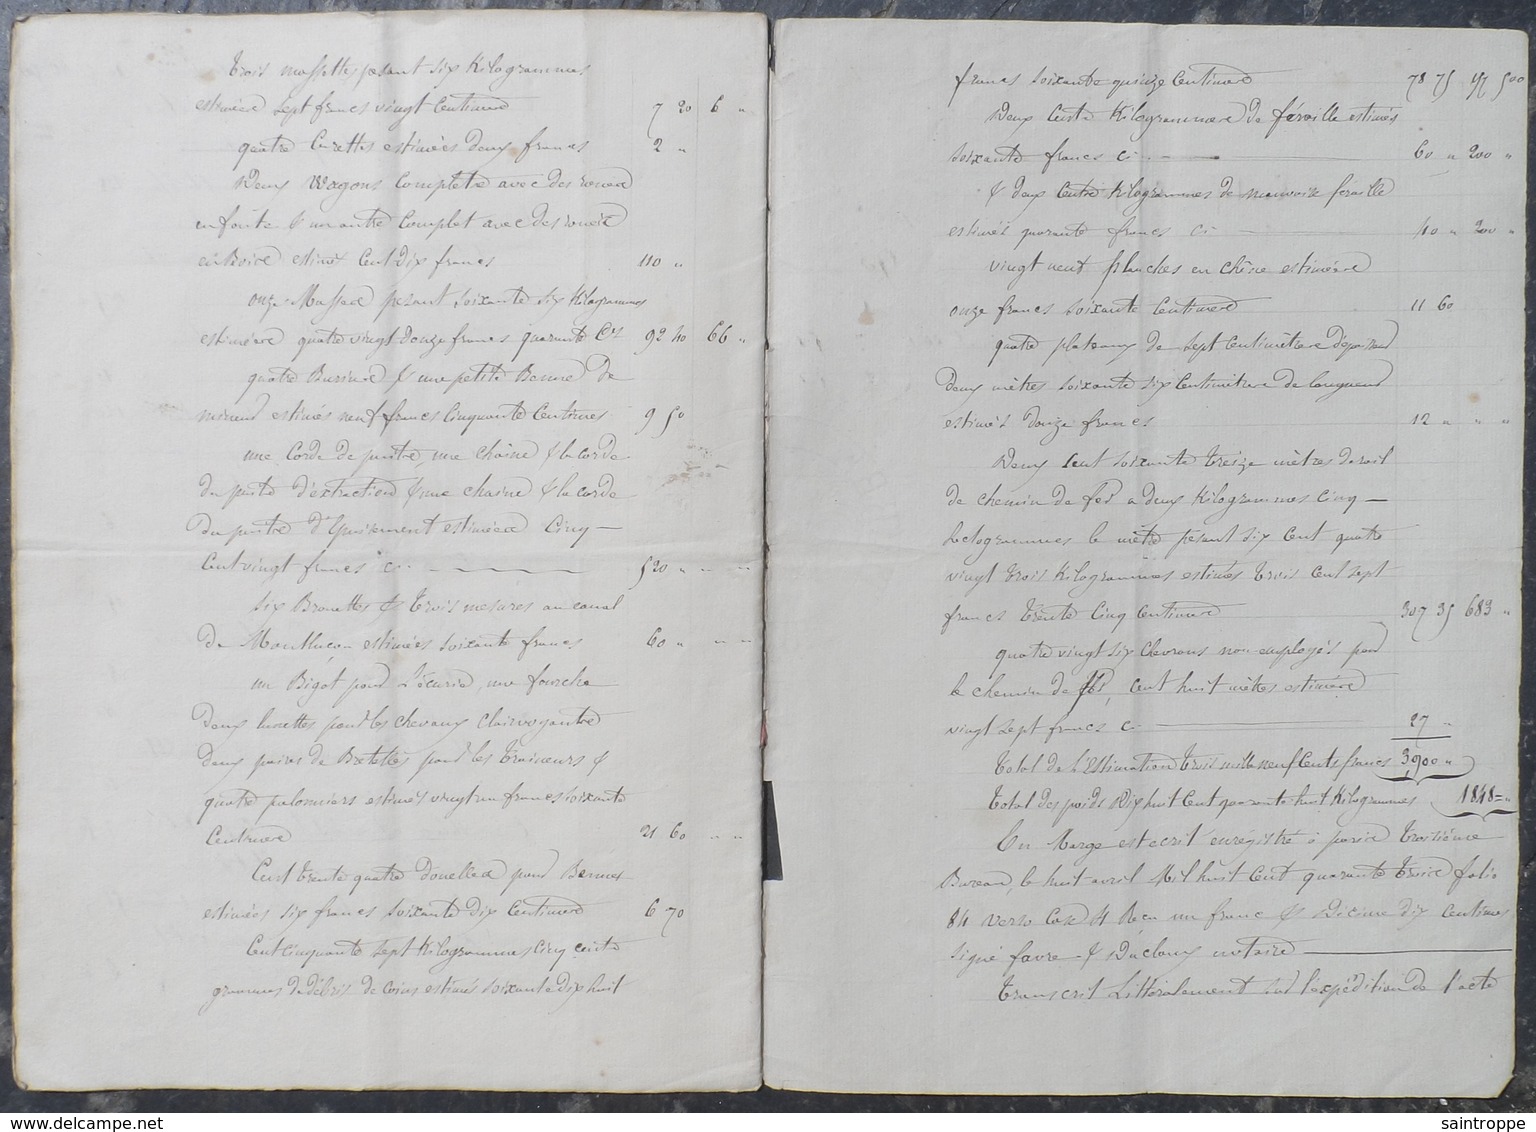 trois massettes pesant six Kilogrammes
estimées sept francs vingt Centimes 7 20 6 "
quatre Curettes estimées deux francs 2 "
Deux Wagons Complets avec des roues
en fonte & un autre Complet avec des roues
en Boire estimés Cent dix francs 110 "
onze Masses pesant soixante six Kilogrammes
estimées quatre vingt Douze francs quarante Cts 92 40 66 "
quatre Burines & une petite Benne de
mineur estimés neuf francs Cinquante Centimes 9 50
une Corde de puits, une chaîne & la Corde
du puits d'extraction & une chaine & la corde
du puits d'Epuisement estimées Cinq
Cent vingt francs ci 520 " " "
six Brouettes & trois mesures au canal
de Montlucon estimées soixante francs 60 " " "
un Bigot pour l'écurie, une fourche
Deux lunettes pour les chevaux Clairvoyants
deux paires de Bretelles pour les traineurs &
quatre palonniers estimés vingt un francs soixante
Centimes 21 60 " "
Cent trente quatre douelles pour Bennes
estimées six francs soixante dix Centimes 6 70
Cent cinquante sept Kilogrammes Cinq cents
grammes de débris de coins estimés soixante dix huit
francs soixante quinze Centimes 78 75 157 500
Deux Cents Kilogrammes de féraille estimés
soixante francs ci 60 " 200 "
& deux Cents Kilogrammes de mauvaise feraille
estimés quarante francs ci 40 " 200 "
vingt neuf planches en chêne estimées
onze francs soixante Centimes 11 60
quatre plateaux de sept Centimètres d'épaisseur
deux mètres soixante six Centimètres de longueur
estimés douze francs 12 " " "
Deux Cent soixante treize mètres de rail
de chemin de fer a deux Kilogrammes Cinq
hectogrammes le mètre pesant six Cent quatre
vingt trois Kilogrammes estimés trois Cent sept
francs trente Cinq Centimes 307 35 683 "
quatre vingt six chevrons non employés pour
le chemin de fer, Cent huit mètres estimés
vingt sept francs ci 27 "
Total de l'Estimation trois mille neuf Cents francs 3,900 "
Total des poids Dix huit Cent quarante huit Kilogrammes 1848 "
En Marge est ecrit enregistré à paris troisième
Bureau, le huit avril Mil huit Cent quarante trois folio
84 verso Case 4 Recu un franc & Dixime dix Centimes
signé favre & Ducloux notaire
transcrit Littéralement sur l'expédition de l'acte
saintroppe
www.delcampe.net